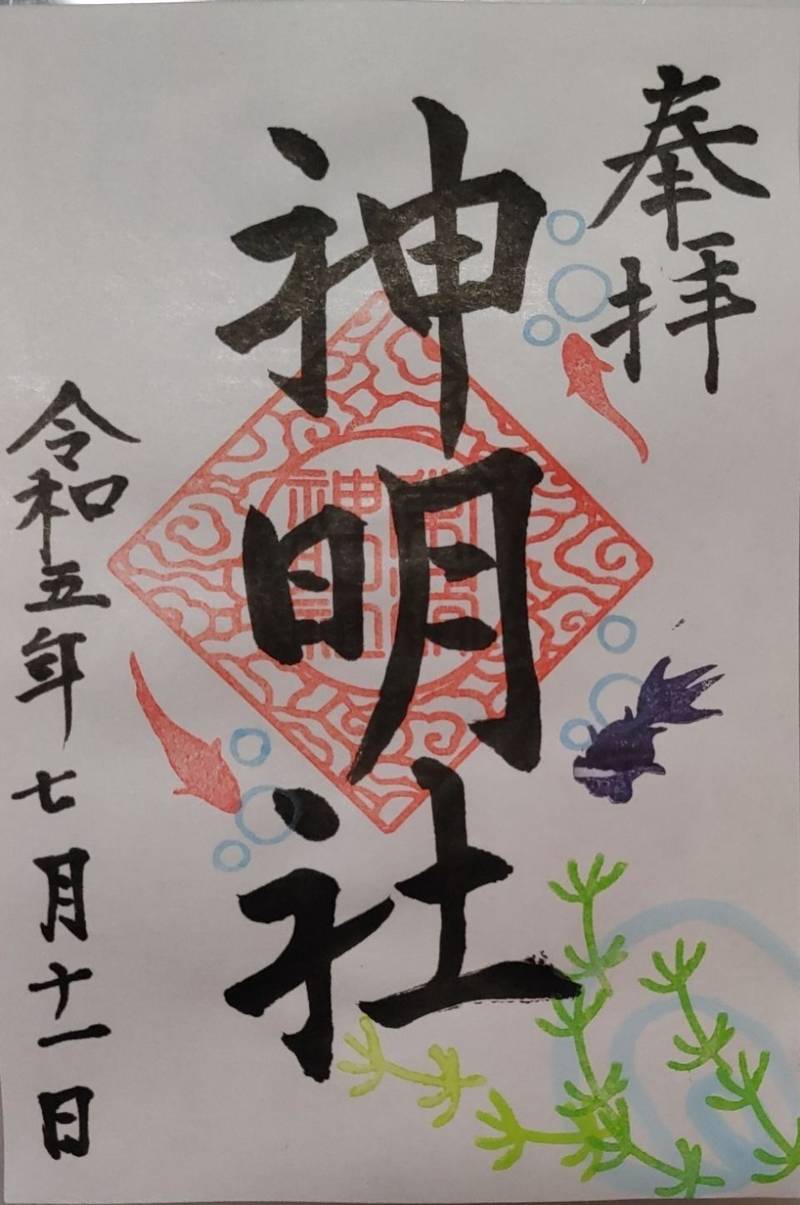 奉拝
神明社
令和五年七月十一日